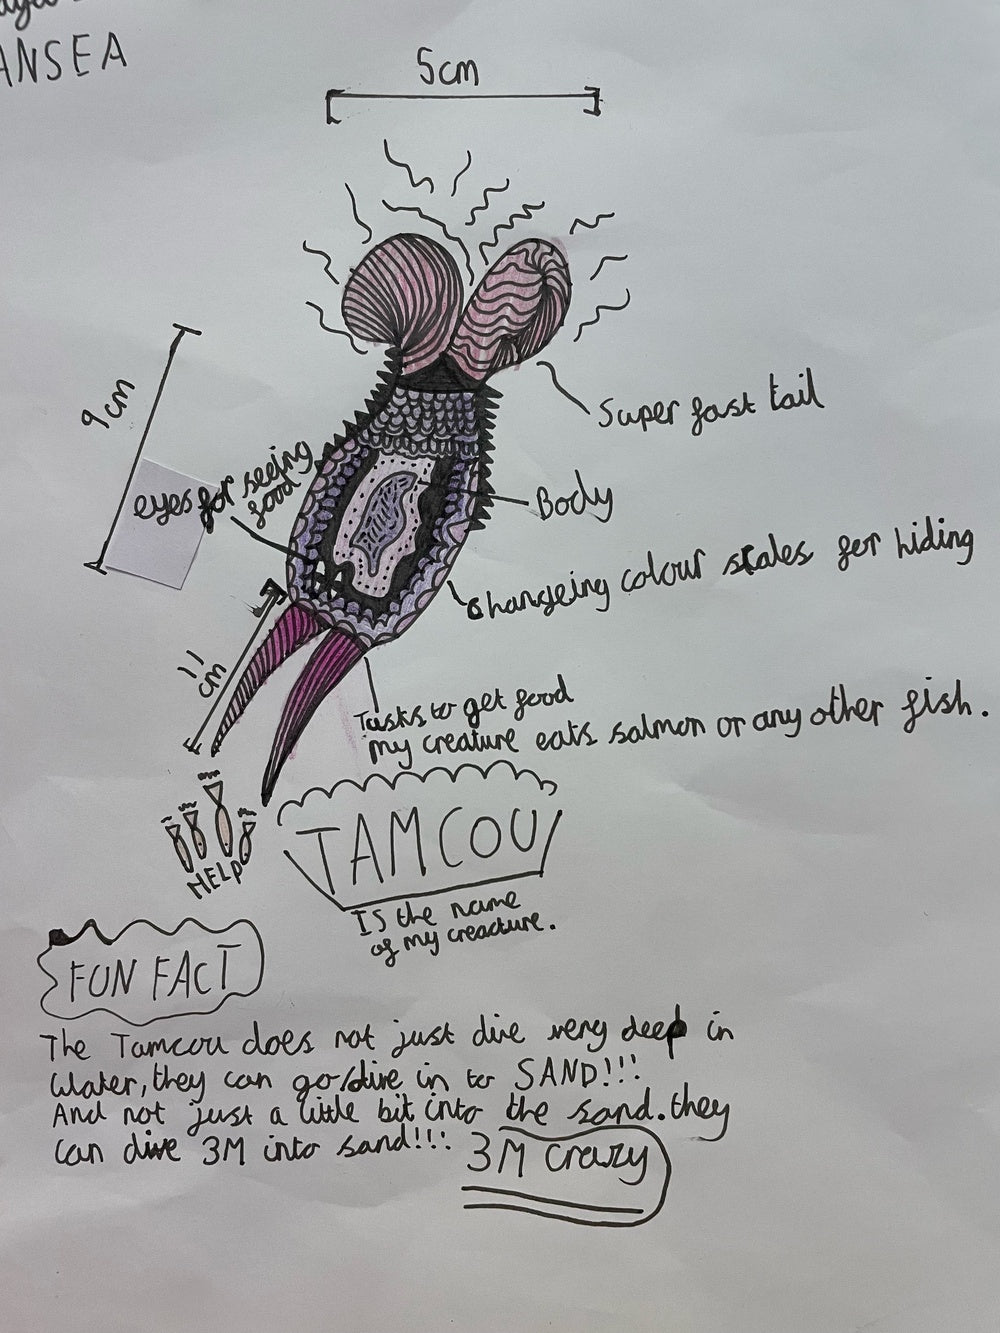 ANSEA
5cm
9cm
Super fast tail
eyes for seeing
food
Body
Changeing colour scales for hiding
11
cm
Tusks to get food
my creature eats salmon or any other fish.
HELP
TAMCOU
IS the name
of my creacture.
FUN FACT
The Tamcou does not just dive very deep in
water, they can go/dive in to SAND!!!
And not just a little bit into the sand. they
can dive 3M into sand!!! 3M crazy